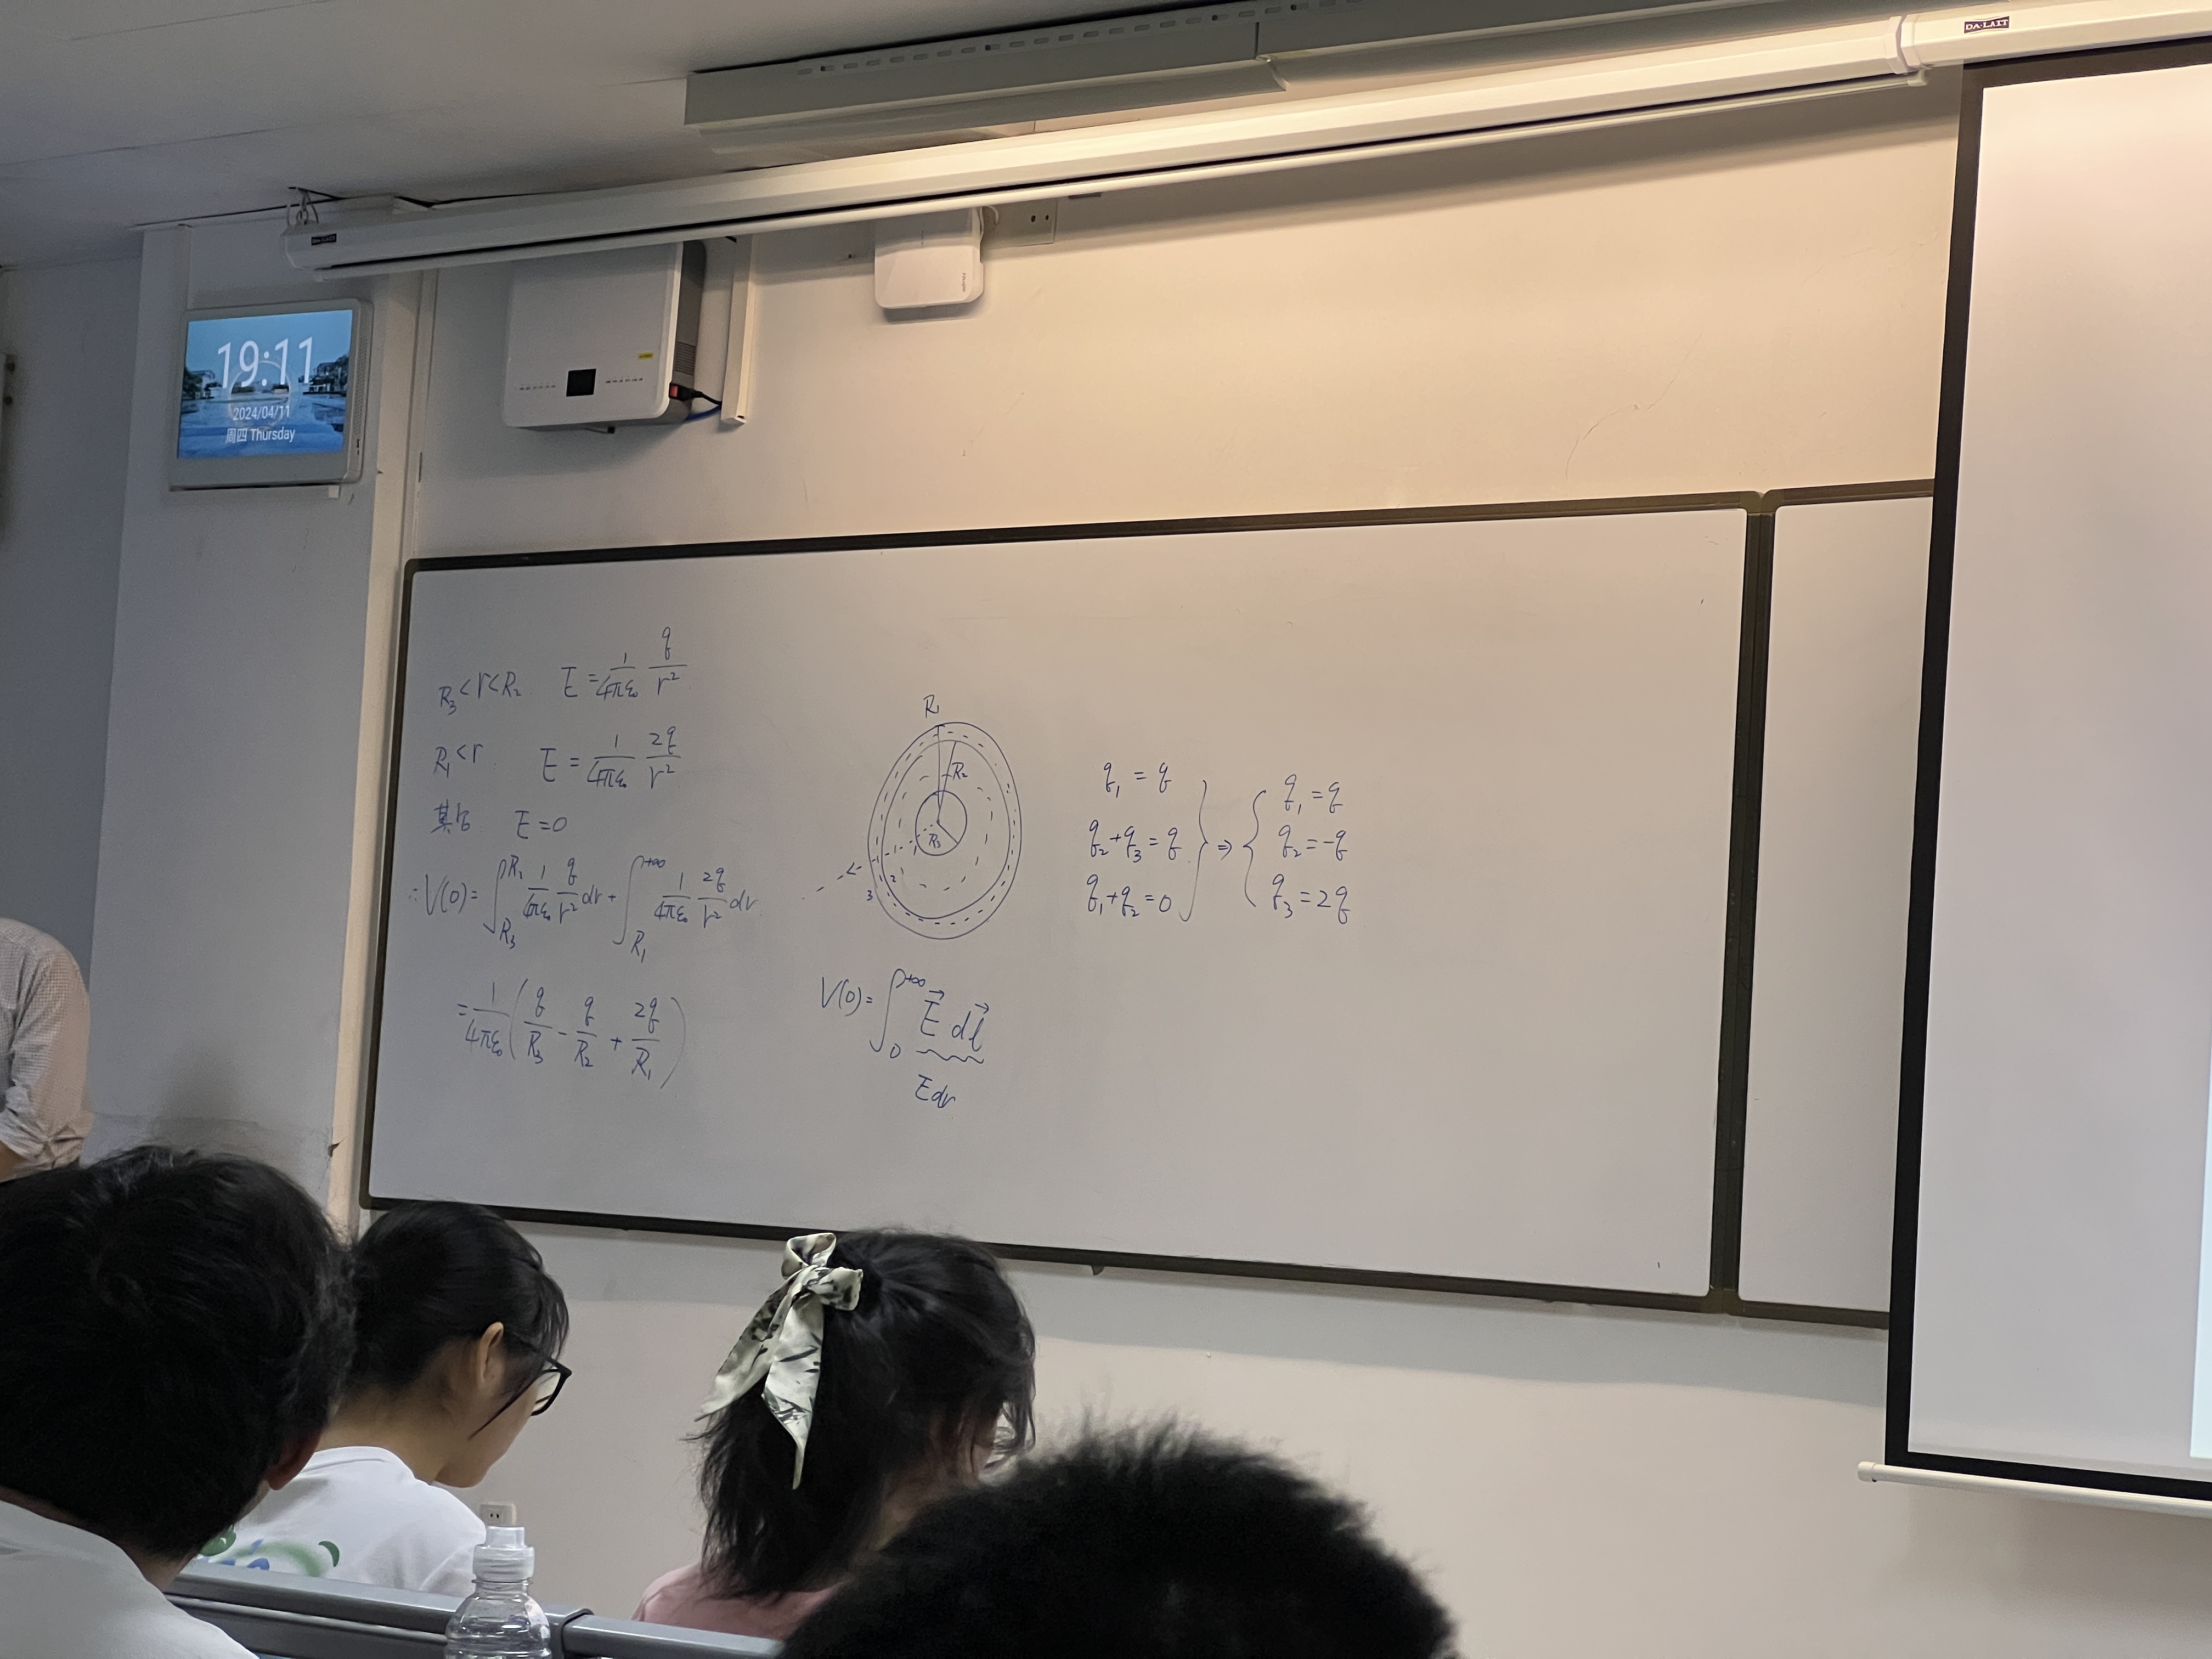 DA-LAIT
DA-LAIT
19:11
2024/04/11
周四 Thursday
R₃<r<R₂ E = 1/4πε₀ q/r²
R₁<r E = 1/4πε₀ 2q/r²
其它 E=0
∴V(0)= ∫_{R₃}^{R₂} 1/4πε₀ q/r² dr + ∫_{R₁}^{+∞} 1/4πε₀ 2q/r² dr
= 1/4πε₀ (q/R₃ - q/R₂ + 2q/R₁)
R₁
R₂
R₃
1
2
3
V(0)= ∫_0^{+∞} E⃗ dl⃗
Edr
q₁ = q
q₂+q₃ = q
q₁+q₂=0
⇒
q₁ = q
q₂ = -q
q₃ = 2q